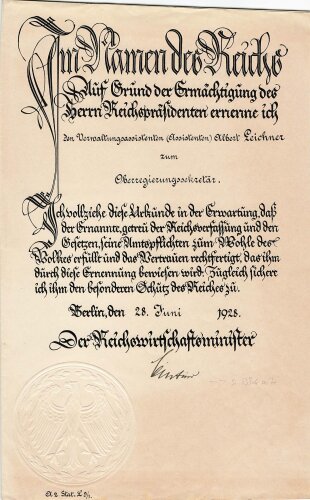 Im Namen des Reichs
Auf Grund der Ermächtigung des
Herrn Reichspräsidenten ernenne ich
den Verwaltungsassistenten (Assistenten) Albert Leichner
zum
Oberregierungssekretär.
Ich vollziehe diese Urkunde in der Erwartung, daß
der Ernannte, getreu der Reichsverfassung und den
Gesetzen, seine Amtspflichten zum Wohle des
Volkes erfüllt und das Vertrauen rechtfertigt, das ihm
durch diese Ernennung bewiesen wird. Zugleich sichere
ich ihm den besonderen Schutz des Reiches zu.
Berlin, den 28. Juni 1928.
Der Reichswirtschaftsminister
Stat.